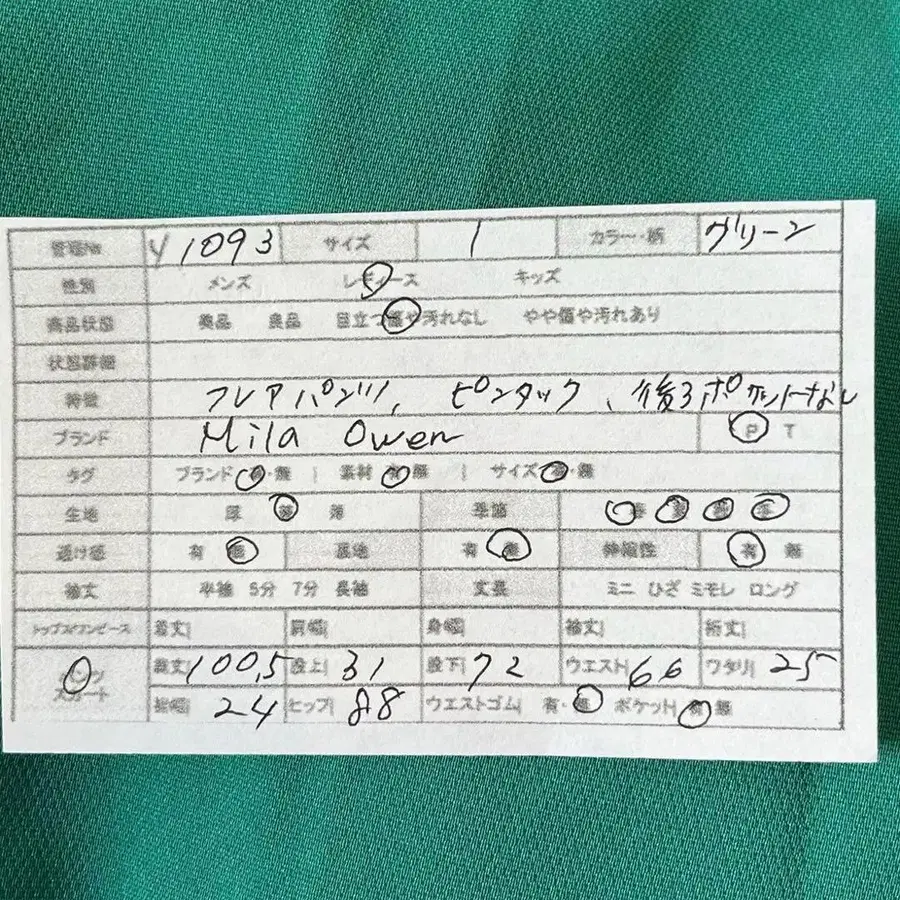 管理No Y1093 サイズ 1 カラー・柄 グリーン
性別 メンズ レディース キッズ
商品状態 美品 良品 目立つ傷や汚れなし やや傷や汚れあり
状態詳細
特徴 フレアパンツ、ピンタック、後ろポケットなし
ブランド Mila Owen P T
タグ ブランド 有・無 | 素材 有・無 | サイズ 有・無
生地 厚 薄 季節 春 夏 秋 冬
透け感 有 無 裏地 有 無 伸縮性 有 無
袖丈 半袖 5分 7分 長袖 丈長 ミニ ひざ ミモレ ロング
トップス/ワンピース 着丈 肩幅 身幅 袖丈 裄丈
パンツ 総丈 100,5 股上 31 股下 72 ウエスト 66 ワタリ 25
スカート 裾幅 24 ヒップ 88 ウエストゴム 有・無 ポケット 有・無